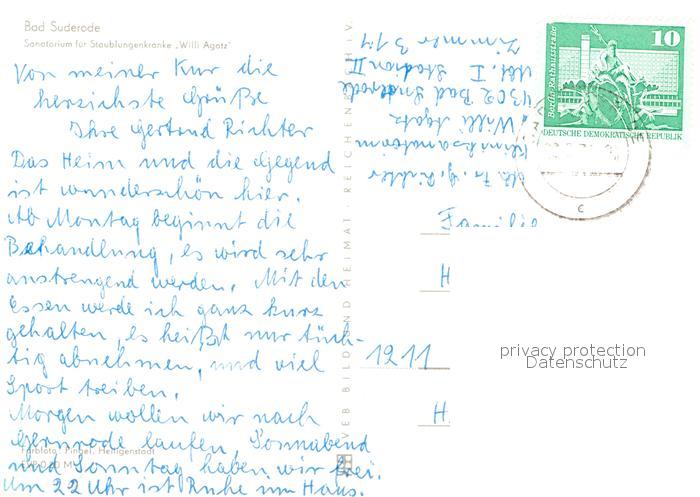 Bad Suderode
Sanatorium für Staublungenkranke „Willi Agatz"
Von meiner Kur die
herzichste Grüße
Ihre Gertrud Richter
Das Heim und die Gegend
ist wunderschön hier.
Ab Montag beginnt die
Behandlung, es wird sehr
anstrengend werden. Mit den
Essen werde ich ganz kurz
gehalten, es heißt nur tüch-
tig abnehmen, und viel
Sport treiben.
Morgen wollen wir nach
Gernrode laufen, Sonnabend
und Sonntag haben wir frei.
Um 22 Uhr ist Ruhe im Haus.
Farbfoto: Pingel, Heiligenstadt
VEB BILD UND HEIMAT · REICHENBACH I. V.
Abs. Fr. G. Richter
Klinik sanatorium
„Willi Agatz
4302 Bad Suderode
Abt. I Station II
Zimmer 314
Familie
H
1211
H
Berlin, Rathausstraße
10
DEUTSCHE DEMOKRATISCHE REPUBLIK
c
privacy protection
Datenschutz